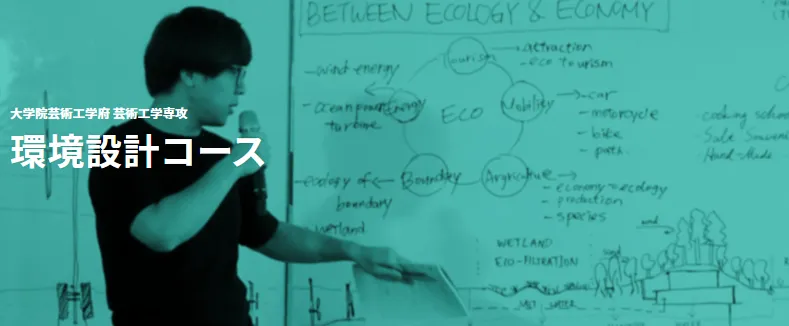 BETWEEN ECOLOGY & ECONOMY
tourism
attraction
eco tourism
wind energy
ocean power
turbine
Energy
ECO
Mobility
car
motorcycle
bike
path
cooking school
Hand-Made
大学院芸術工学府 芸術工学専攻
環境設計コース
ecology of
boundary
wetland
Boundry
Argriculture
economy = ecology
production
species
WETLAND
ECO-FILTRATION